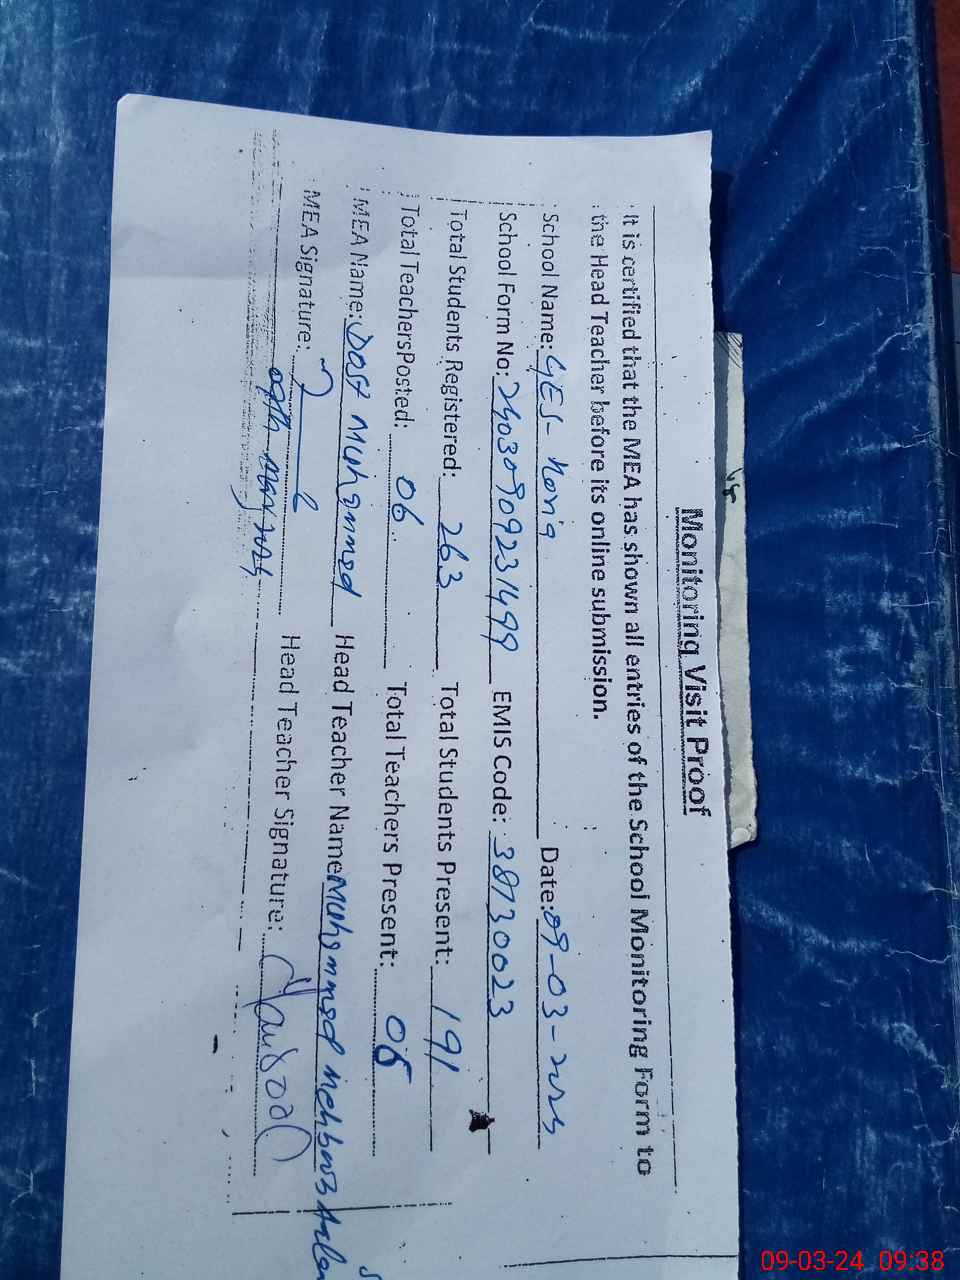 Monitoring Visit Proof
It is certified that the MEA has shown all entries of the School Monitoring Form to
the Head Teacher before its online submission.
School Name: GES Date: 09-03-
School Form No: 24030909231499 EMIS Code: 38130023
Total Students Registered: 263 Total Students Present: 191
Total Teachers Posted: 06 Total Teachers Present:
MEA Name: Dost Muhammad Head Teacher Name Muhammad
MEA Signature: Head Teacher Signature:
09-03-24 09:38